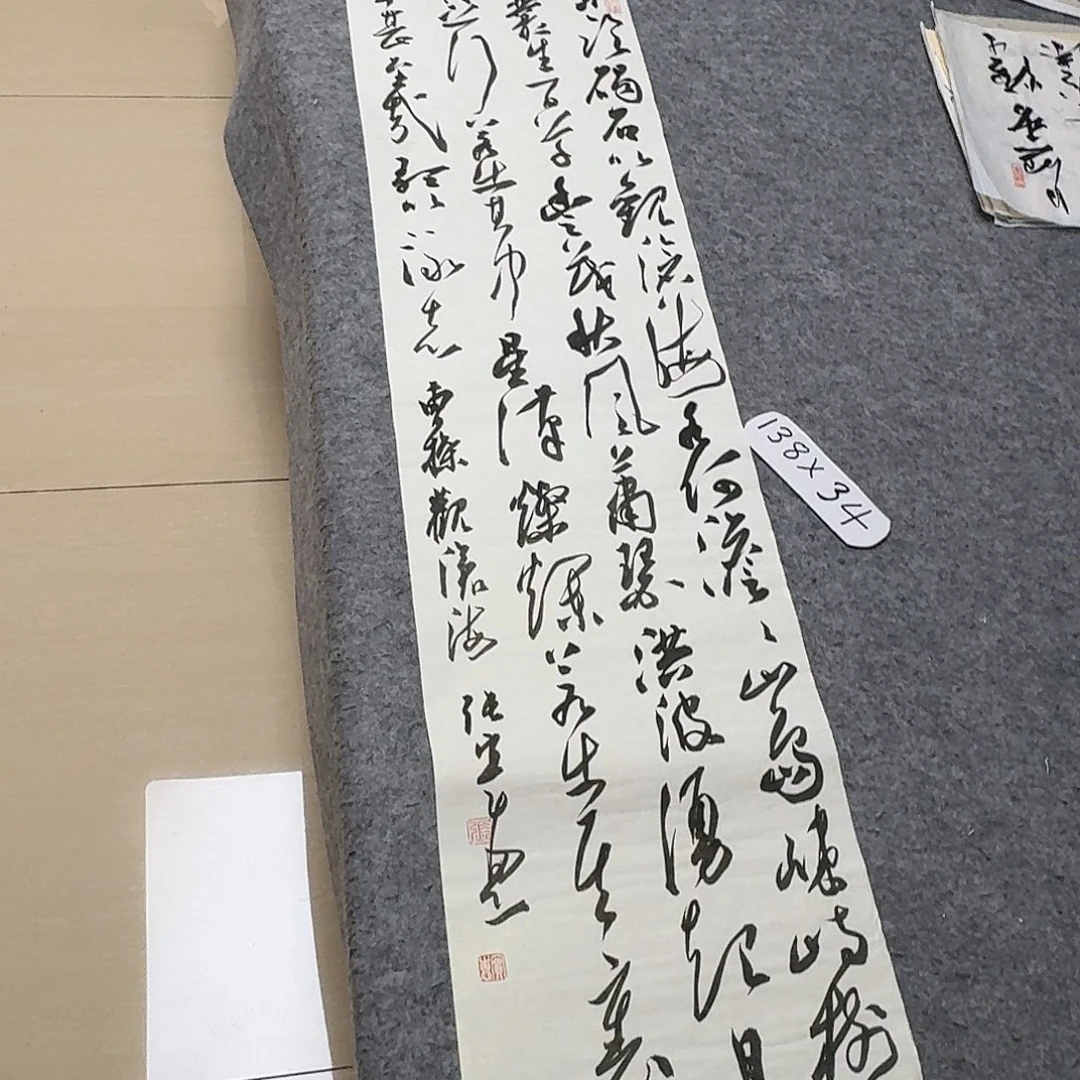 臨碣石以觀滄海水何澹〻山島竦峙樹
叢生百草豐茂秋風蕭瑟洪波湧起日
之行若出其中星漢燦爛若出其裏
幸甚至哉歌以詠志 曹操觀滄海 張
138X34